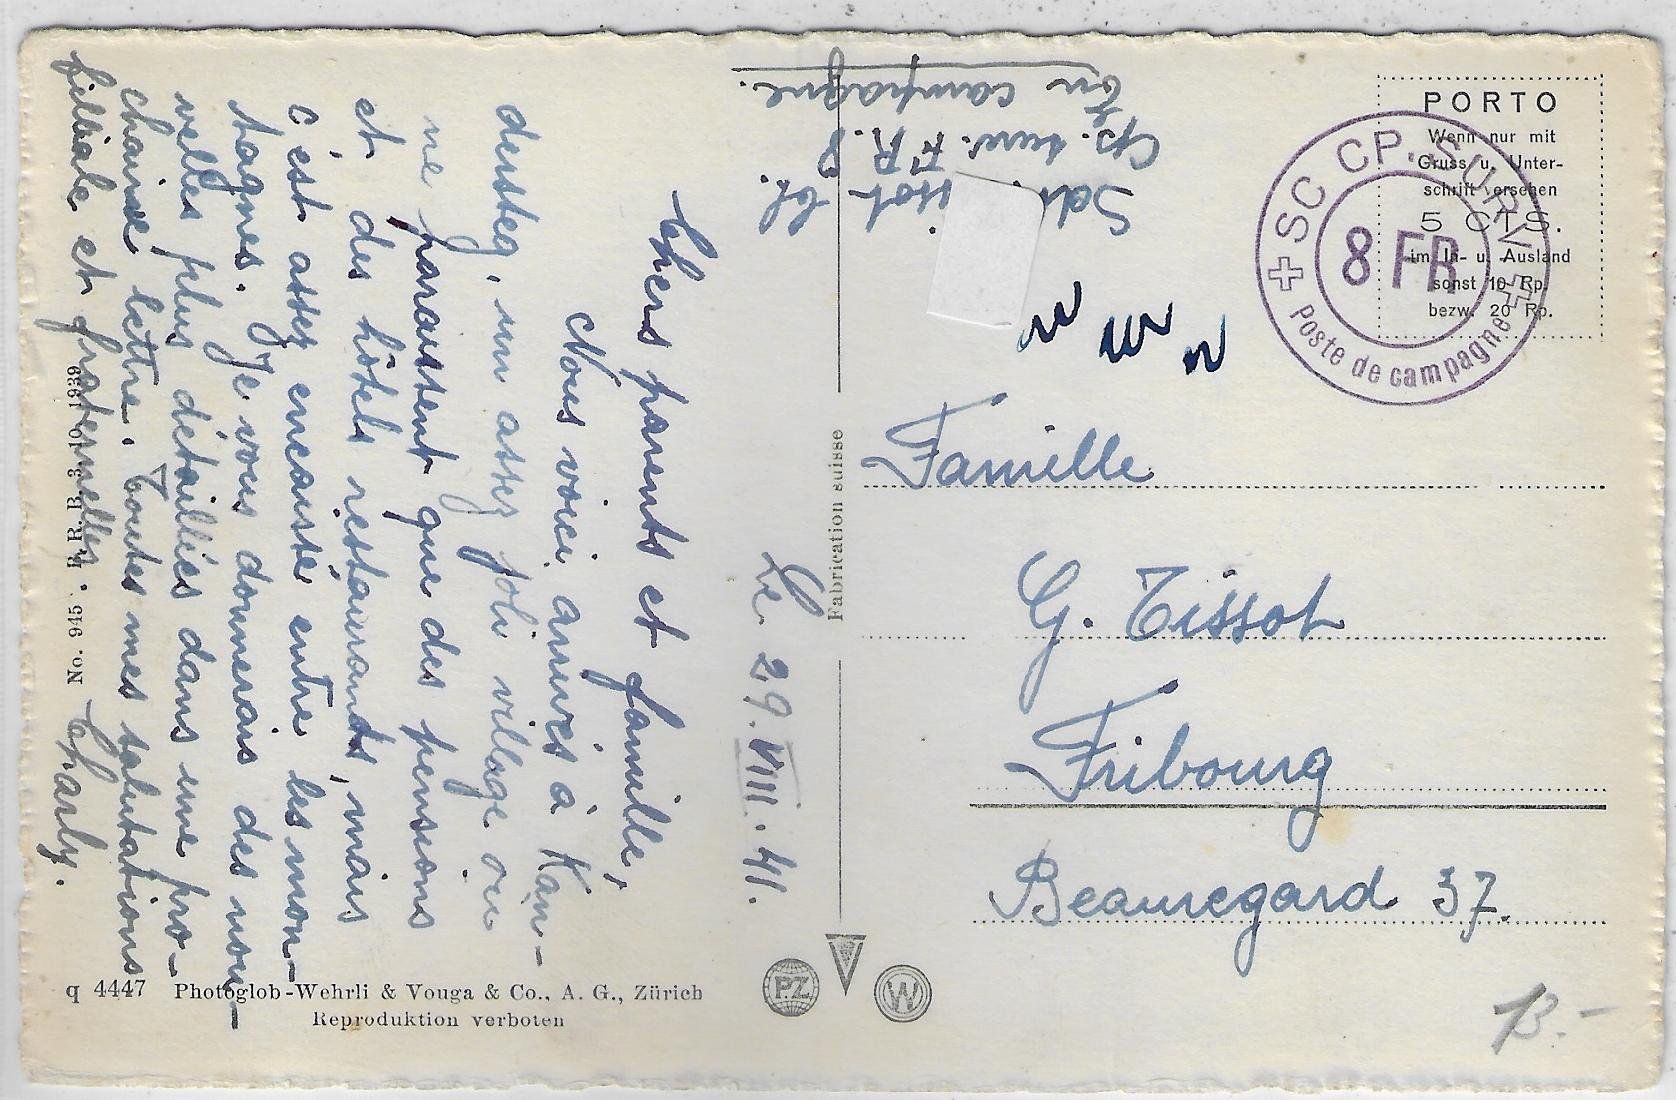 Le 29.VIII.41.
Chers parents et famille,
Nous voici arrivés à Kan-
dersteg, un assez joli village où
ne paraissent que des pensions
et des hôtels restaurants, mais
c'est assez encaissé entre les mon-
tagnes. Je vous donnerais des nou-
velles plus détaillées dans une pro-
chaine lettre. Toutes mes salutations
filiale et fraternelles.
Charly.
Cp. surv. FR. 8
En campagne.
PORTO
Wenn nur mit
Gruss u. Unter-
schrift versehen
5 CTS.
im In- u. Ausland
sonst 10 Rp.
bezw. 20 Rp.
SC CP. SURV
8 FR
Poste de campagne
Famille
G. Tissot
Fribourg
Beauregard 37.
Fabrication suisse
No. 945 P.R.B. 3.10.1939
q 4447 Photoglob-Wehrli & Vouga & Co., A. G., Zürich
Reproduktion verboten
PZ
W
13.-